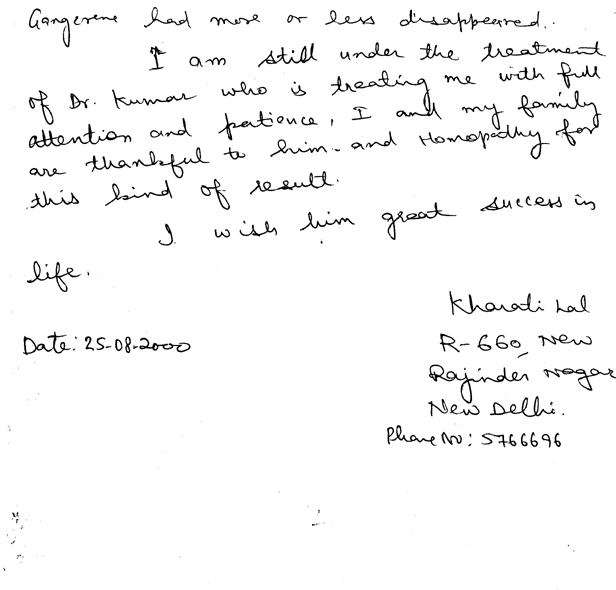 Gangerene had more or less disappeared..
I am still under the treatment
of Dr. Kumar who is treating me with full
attention and patience, I and my family
are thankful to him. and Homopathy for
this kind of result.
I wish him great success in
life.
Kharati Lal
Date: 25-08-2000
R-660, New
Rajinder Nagar
New Delhi.
Phone No: 5766696